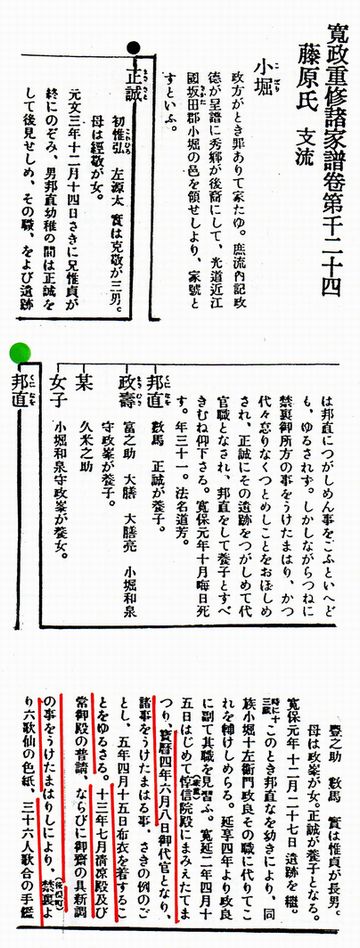 寛政重修諸家譜卷第千二十四
藤原氏 支流
小堀
政方がとき罪ありて家たゆ。庶流内記政
德が呈譜に秀郷が後裔にして、光道近江
國坂田郡小堀の邑を領せしより、家號と
すといふ。
正誠
初惟弘 左源太 實は克敬が三男。
母は經敬が女。
元文三年十二月十四日さきに兄惟貞が
終にのぞみ、男邦直幼稚の間は正誠を
して後見せしめ、その職、をよび遺跡
は邦直につがしめん事をこふといへど
も、ゆるされず。しかしながらつねに
禁裏御所方の事をうけたまはり、かつ
代々怠りなくつとめしことをおぼしめ
され、正誠にその遺跡をつがしめて代
官職となされ、邦直をして養子とすべ
きむね仰下さる。寛保元年十月晦日死
す。年三十一。法名道芳。
邦直 數馬 正誠が養子。
政壽 富之助 大膳 大膳亮 小堀和泉
守政峯が養子。
某 久米之助
女子 小堀和泉守政峯が養女。
邦直
豐之助 數馬 實は惟貞が長男。
母は政峯が女。正誠が養子となる。
寛保元年十二月二十七日遺跡を繼。
時に十三歳 このとき邦直なを幼きにより、同
族小堀十左衞門政良その職に代りてこ
れを輔けしめらる。延享四年より政良
に副て其職を見習ふ。寛延二年四月十
五日はじめて惇信院殿にまみえたてま
つり、寶曆四年六月八日御代官となり、
諸事をうけたまはる事、さきの例のご
とし、五年四月十五日布衣を着するこ
とをゆるさる。十三年七月清凉殿及び
常御殿の普請、ならびに御齋の具新調
の事をうけたまはりしにより、禁裏よ
(後櫻町)
り六歌仙の色紙、三十六人歌合の手鑑